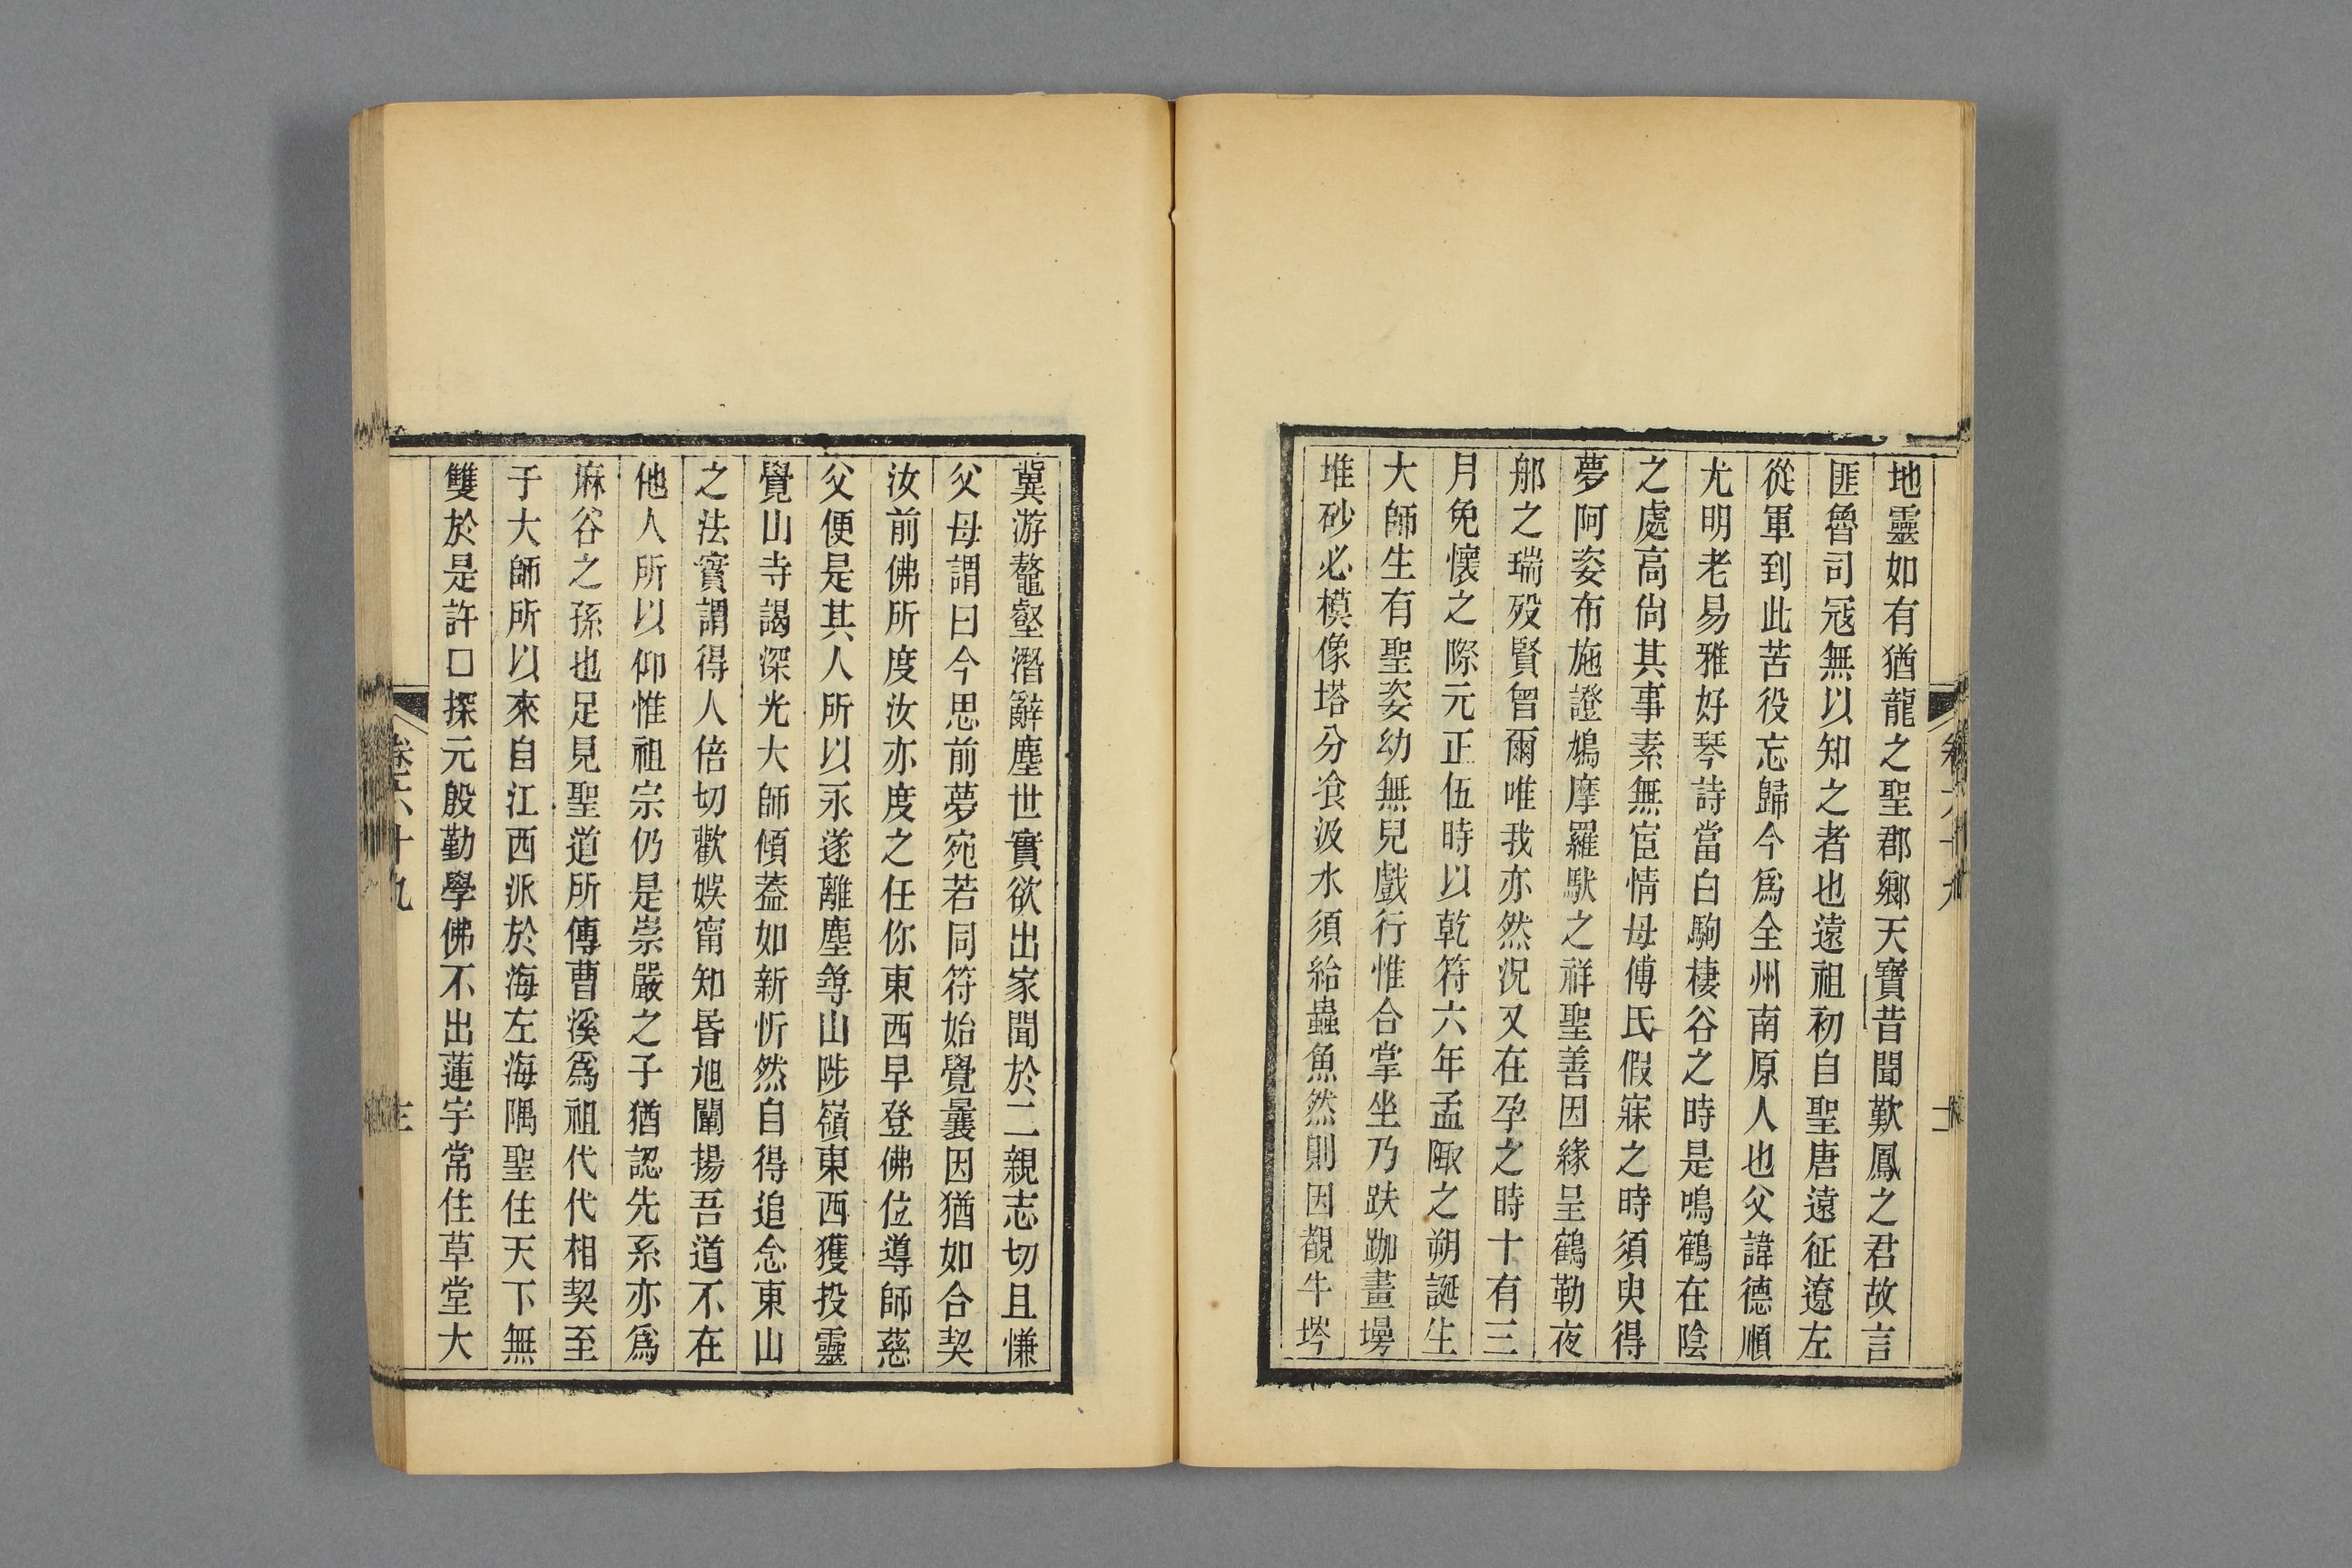 地靈如有猶龍之聖郡鄉天寶昔聞歎鳳之君故言
匪魯司冦無以知之者也遠祖初自聖唐遠征遼左
從軍到此苦役忘歸今爲全州南原人也父諱德順
尤明老易雅好琴詩當白駒棲谷之時是鳴鶴在陰
之處高尙其事素無宦情母傅氏假寐之時須臾得
夢阿㜫布施證鳩摩羅馱之祥聖善因緣呈鶴勒夜
郍之瑞殁賢曾爾唯我亦然況又在孕之時十有三
月免懷之際元正伍時以乾符六年孟陬之朔誕生
大師生有聖姿幼無兒戲行惟合掌坐乃趺跏畫墁
堆砂必模像塔分飡汲水須給蟲魚然則因覩牛埁
冀游鼇壑潛辭塵世實欲出家聞於二親志切且慊
父母謂曰今思前夢宛若同符始覺曩因猶如合契
汝前佛所度汝亦度之任你東西早登佛位導師慈
父便是其人所以永遂離塵尋山陟嶺東西獲投靈
覺山寺謁深光大師傾蓋如新忻然自得追念東山
之法寶謂得人倍切歡娛甯知昬旭闡揚吾道不在
他人所以仰惟祖宗仍是崇嚴之子猶認先系亦爲
麻谷之孫也足見聖道所傳曹溪爲祖代代相契至
于大師所以來自江西派於海左海隅聖住天下無
雙於是許口探元殷勤學佛不出蓮宇常住草堂大
卷六十九